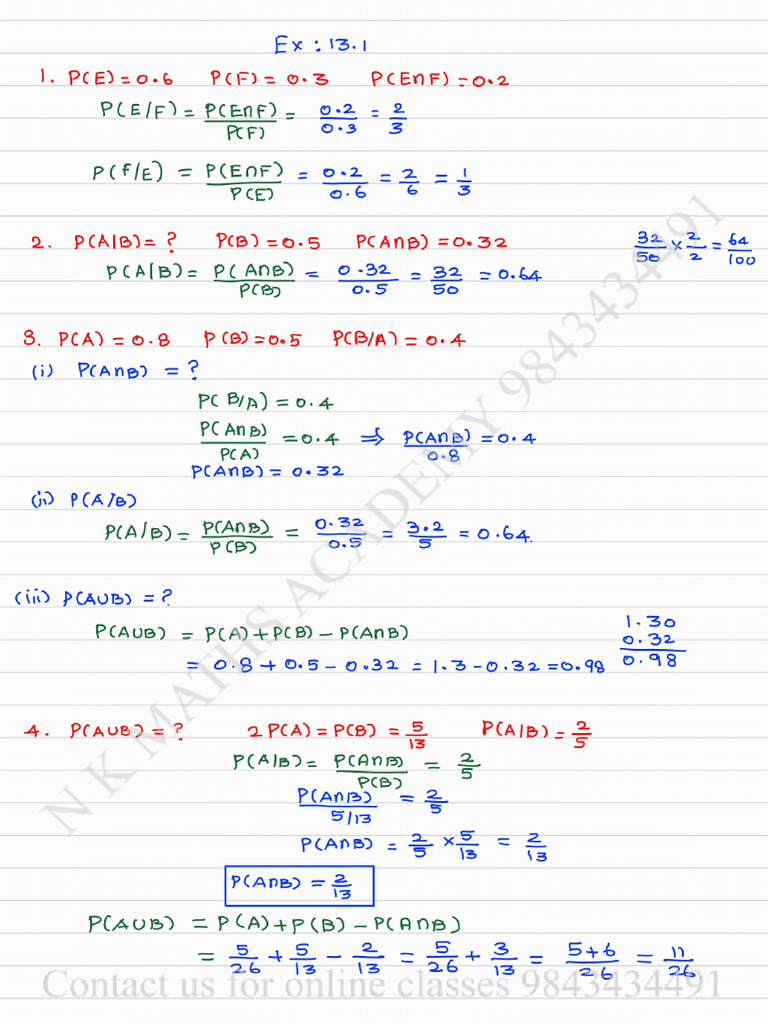 Ex : 13.1
1. P(E) = 0.6 P(F) = 0.3 P(E∩F) = 0.2
P(E/F) = P(E∩F)/P(F) = 0.2/0.3 = 2/3
P(F/E) = P(E∩F)/P(E) = 0.2/0.6 = 2/6 = 1/3
2. P(A|B) = ? P(B) = 0.5 P(A∩B) = 0.32 32/50 × 2/2 = 64/100
P(A|B) = P(A∩B)/P(B) = 0.32/0.5 = 32/50 = 0.64
3. P(A) = 0.8 P(B) = 0.5 P(B/A) = 0.4
(i) P(A∩B) = ?
P(B/A) = 0.4
P(A∩B)/P(A) = 0.4 ⇒ P(A∩B)/0.8 = 0.4
P(A∩B) = 0.32
(ii) P(A/B)
P(A/B) = P(A∩B)/P(B) = 0.32/0.5 = 3.2/5 = 0.64.
(iii) P(A∪B) = ?
P(A∪B) = P(A) + P(B) − P(A∩B)
= 0.8 + 0.5 − 0.32 = 1.3 − 0.32 = 0.98
1.30
0.32
0.98
4. P(A∪B) = ? 2P(A) = P(B) = 5/13 P(A|B) = 2/5
P(A|B) = P(A∩B)/P(B) = 2/5
P(A∩B)/5/13 = 2/5
P(A∩B) = 2/5 × 5/13 = 2/13
P(A∩B) = 2/13
P(A∪B) = P(A) + P(B) − P(A∩B)
= 5/26 + 5/13 − 2/13 = 5/26 + 3/13 = 5+6/26 = 11/26
N K MATHS ACADEMY 9843434491
Contact us for online classes 9843434491